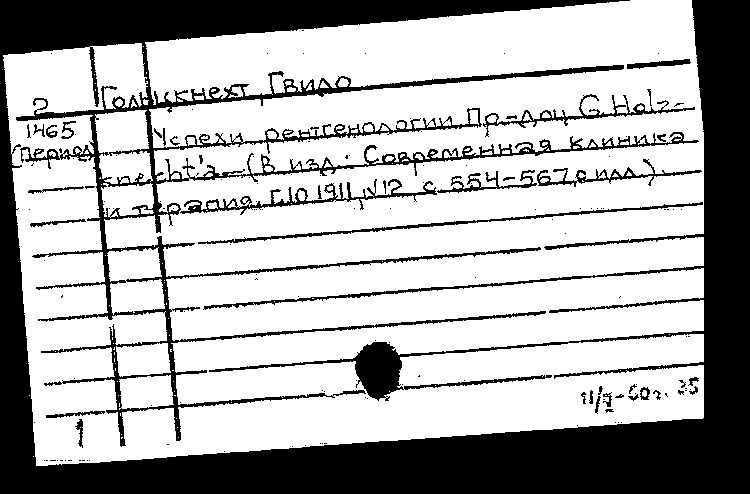 2 Гольцкнехт, Гвидо
1465 Успехи рентгенологии Пр-доц G. Holz-
(период) knecht'a.-(В изд.: Современная клиника
и терапия. Г.10 1911, №12, с. 554-567, с илл.).
11/X-60г. 35
1